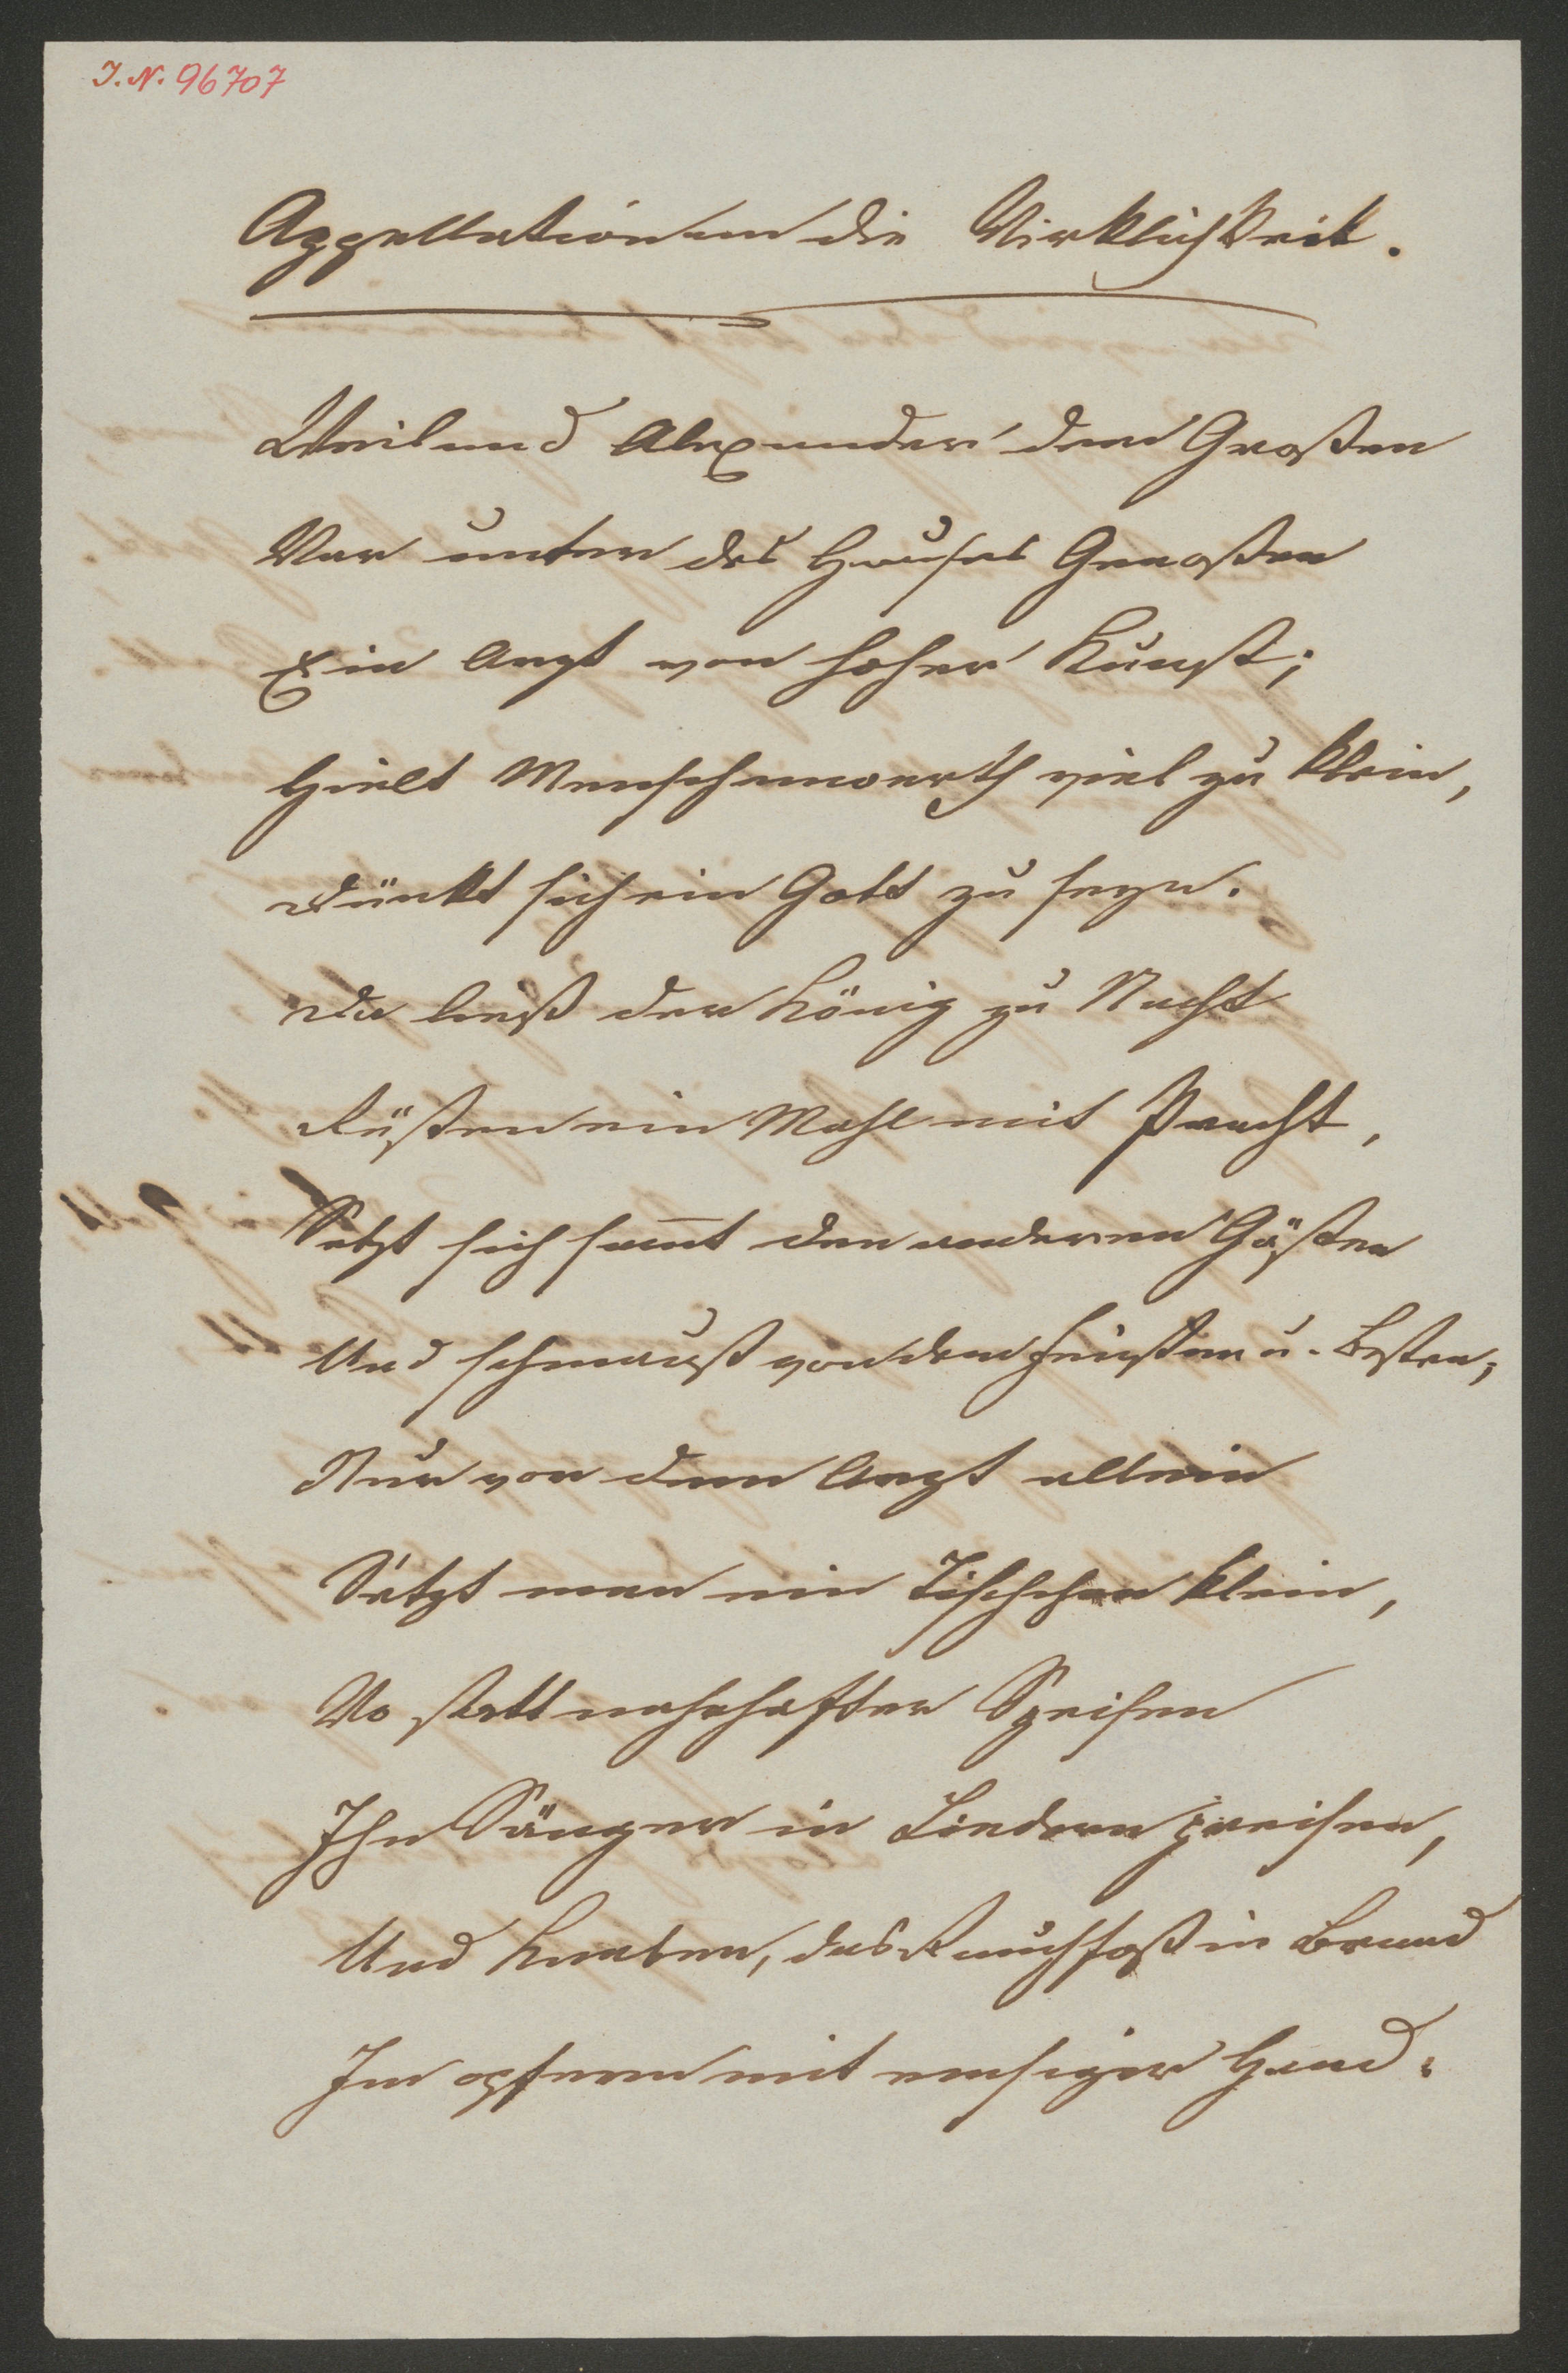 I. N. 96707
Appellation an die Wirklichkeit.
Weiland Alexander dem Großen
War unter des Hauses Genoßen
Ein Arzt von hoher Kunst;
Hielt Menschenwerth viel zu klein,
Dünkt sich ein Gott zu seyn.
Da ließ der König zu Nacht
Rüsten ein Mahl mit Pracht,
Setzt sich samt den anderen Gästen
Und schmaust von dem Feinsten u. Besten;
Nur vor dem Arzt allein
Setzt man ein Tischchen klein,
Wo statt nahrhafter Speisen
Ihn Sänger in Liedern preisen,
Und Knaben, das Rauchfaß in Brand
Im opfern mit emsiger Hand.